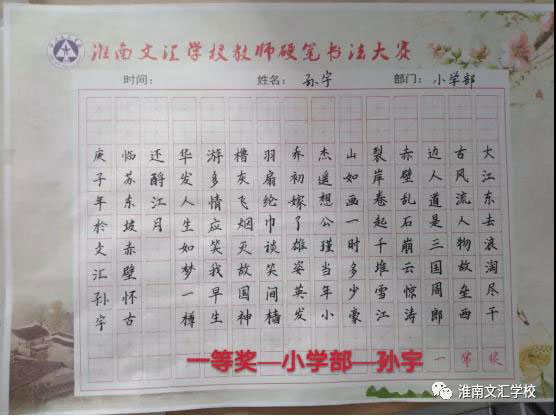 淮南文汇学校教师硬笔书法大赛
时间： 姓名：孙宇 部门：小学部
大江东去浪淘尽千
古风流人物故垒西
边人道是三国周郎
赤壁乱石崩云惊涛
裂岸卷起千堆雪江
山如画一时多少豪
杰遥想公瑾当年小
乔初嫁了雄姿英发
羽扇纶巾谈笑间樯
橹灰飞烟灭故国神
游多情应笑我早生
华发人生如梦一樽
还酹江月
临苏东坡赤壁怀古
庚子年於文汇孙宇
一等奖
一等奖—小学部—孙宇
淮南文汇学校